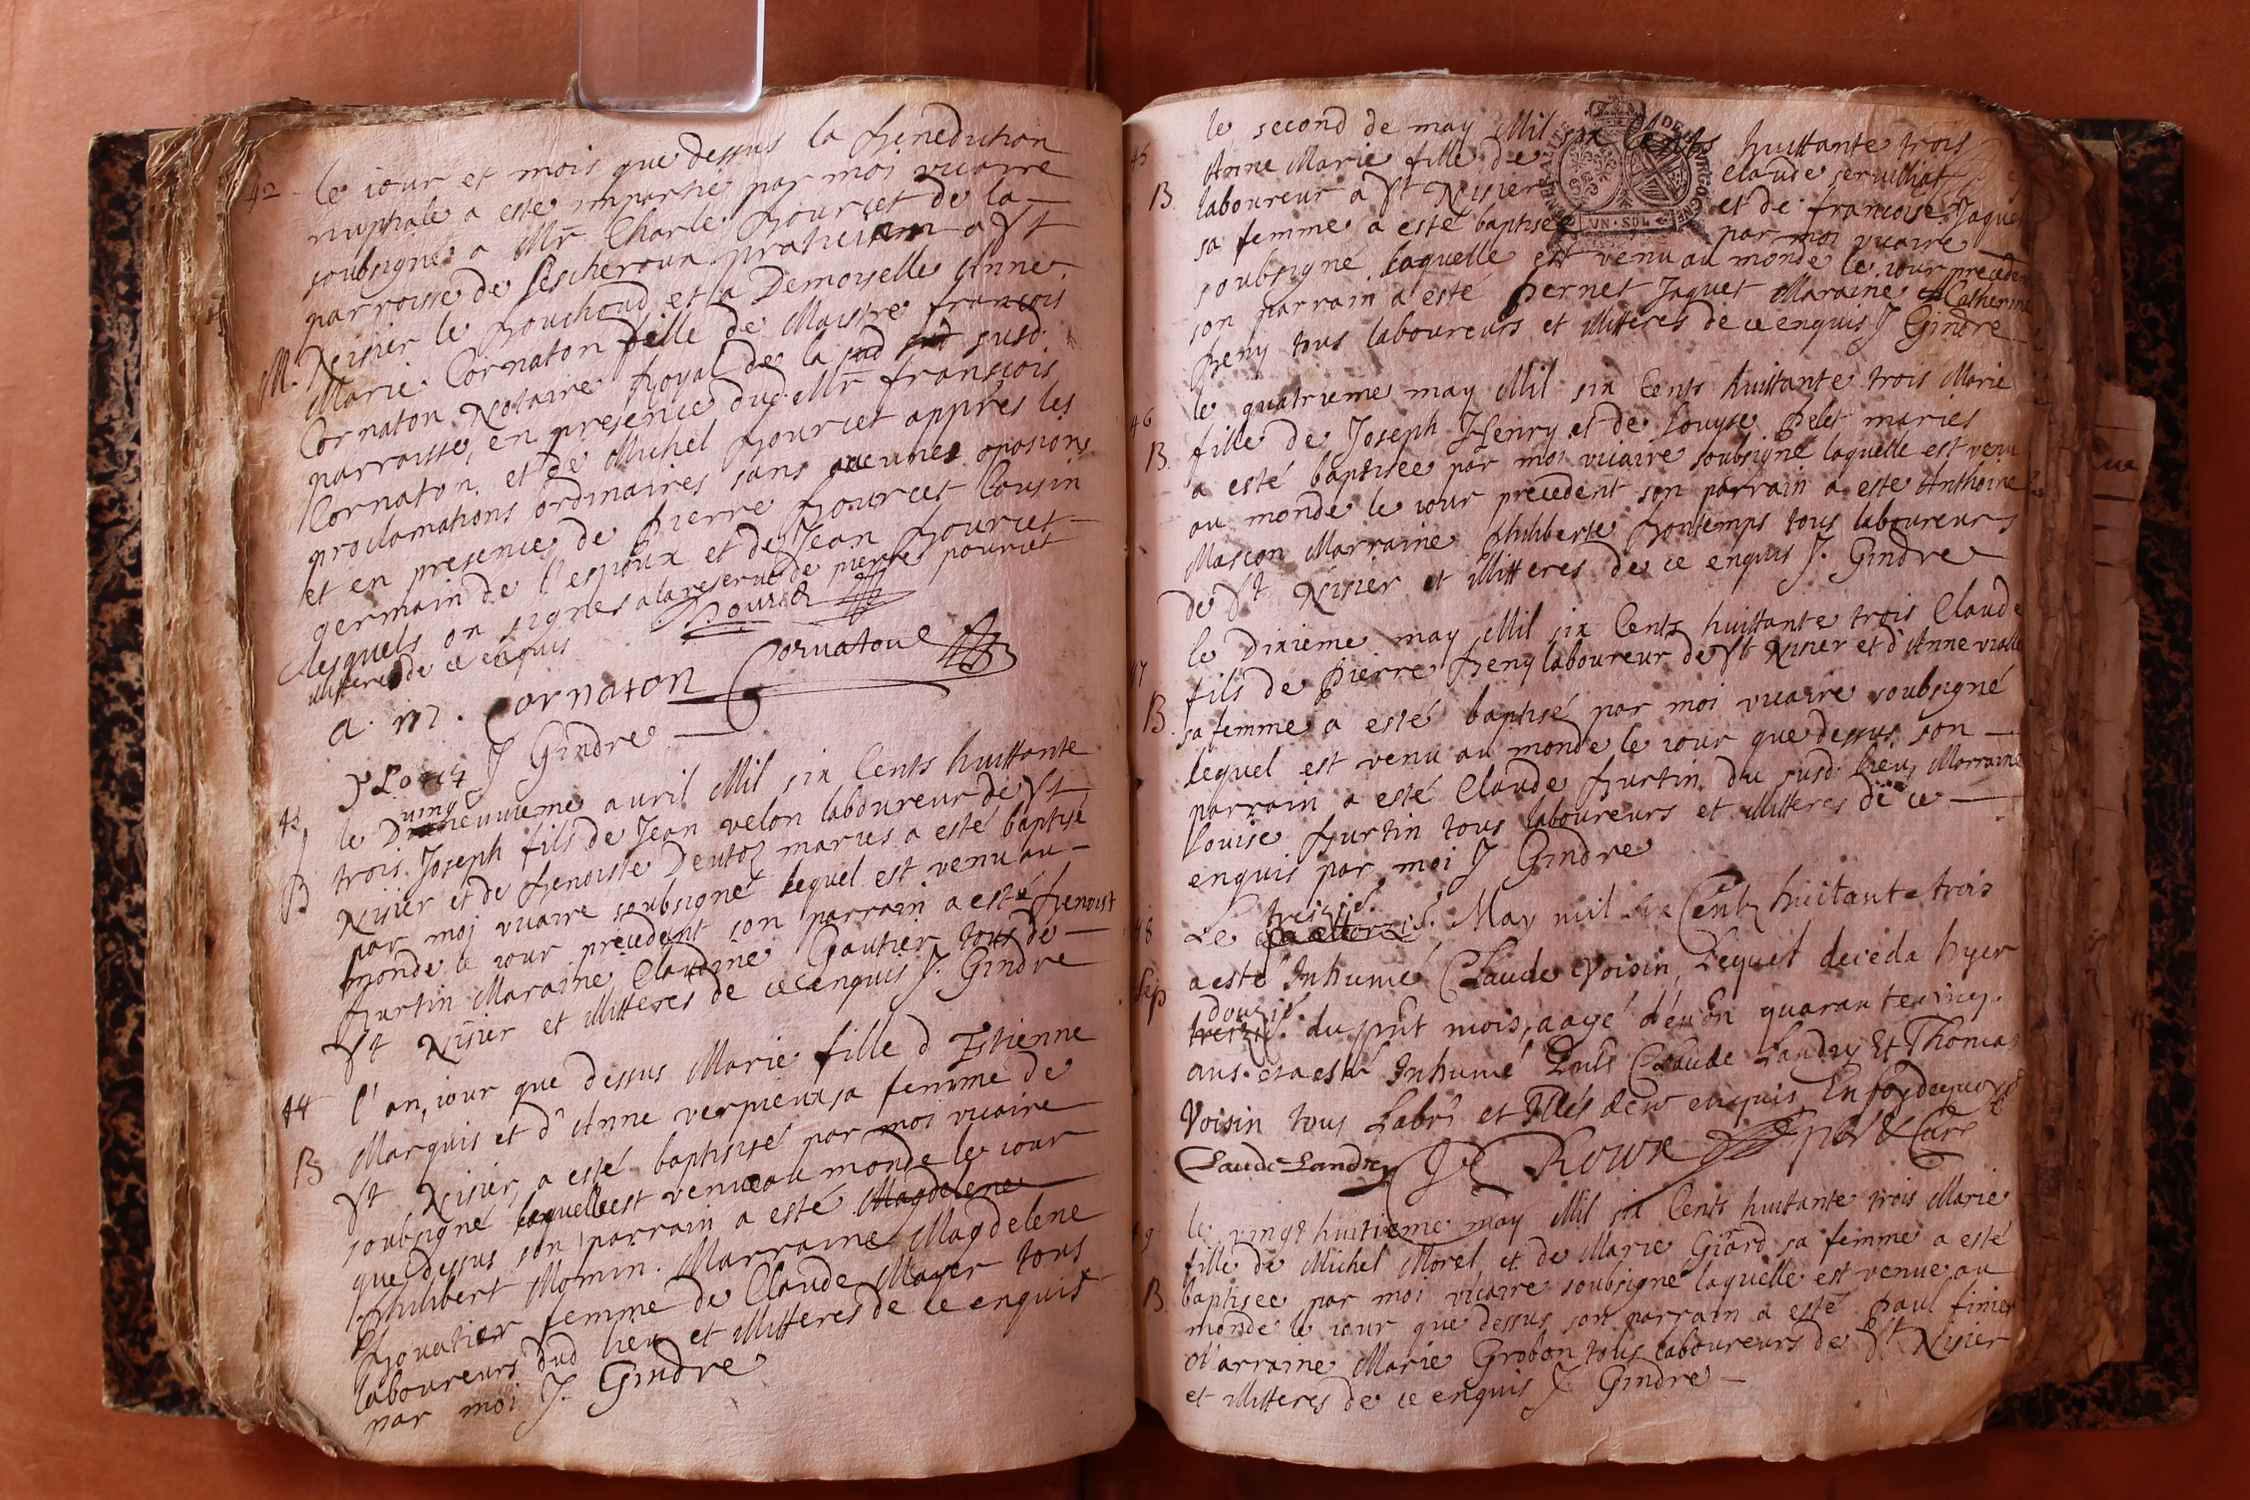 42 le iour et mois que dessus la benediction
nuptiale a esté impartie par moi vicaire
soubsigné a Mr Charle Pourcet de la
parroisse de Lescheroux praticien a St
M. Nisier le Bouchoud et a Demoiselle Anne
Marie Cornaton fille de Maistre françois
Cornaton Notaire Royal de la susd
parroisse, en presence dud Mr françois
Cornaton et de Michel Pourcet appres les
proclamations ordinaires sans aucunes oposions
et en presence de Pierre Pourcet Cousin
germain de l'espoux et de Jean Pourcet
lesquels on signes a la reserve de pierre pourcet
illitteré de ce enquis Pourcet
a. m. Cornaton Cornaton
J Gindre
43 le vingt avril Mil six Cents huittante
trois Joseph fils de Jean velon laboureur de St
B Nisier et de benoiste maries a esté baptisé
par moj vicaire soubsigné lequel est venu au
monde le iour precedent son parrain a esté benoist
burtin Maraine Claudine Gautier tous de
St Nisier et illitteres de ce enquis J. Gindre
44 l'an, iour que dessus Marie fille d Estienne
Marquis et d'Anne verpieux sa femme de
B St Nisier, a esté baptisée par moi vicaire
soubsigné laquelle est venue au monde le iour
que dessus son parrain a esté Magdelene
philibert Momin. Marraine Magdelene
femme de Claude Mayer tous
laboureurs dud lieu et illitteres de ce enquis
par moi J. Gindre
45 le second de may Mil six Cents huittante trois
Anne Marie fille de Claude servilliat
B. laboureur a St Nisier et de francoise Jaquet
sa femme a esté baptisée par moi vicaire
soubsigné laquelle est venu au monde le iour precedent
son parrain a esté Pernet Jaquet Maraine Catherine
beny tous laboureurs et illitteres de ce enquis J Gindre
46 le quatrieme may Mil six Cents huittante trois Marie
fille de Joseph Henry et de Louyse Pelet maries
B. a esté baptisee par moi vicaire soubsigné laquelle est venu
au monde le iour precedent son parrain a esté Anthoine
Mascon Marraine philiberte bontemps tous laboureurs
de St Nisier et illitteres de ce enquis J. Gindre
47 le Dixieme may Mil six Cents huittante trois Claude
fils de Pierre beny laboureur de St Nisier et d'Anne
B. sa femme a esté baptisé par moi vicaire soubsigné
lequel est venu au monde le iour que dessus son
parrain a esté Claude burtin du susd lieu, Marraine
Louise burtin tous laboureurs et illitteres de ce
enquis par moi J Gindre
treizie.
48 Le May mil six Centz huitante trois
Sep a esté Inhumé Claude Voisin, Lequel deceda hyer
douzie.
treizie. du prnt mois, aagé d'en.on quarante cinq
ans. et a esté Inhumé Pnts Claude Landry Et Thomas
Voisin tous Labrs et Illes de ce enquis, En foy de quoy
Claude Landry Roux pbr &
le vingt huitieme may Mil six Cents huitante trois Marie
fille de Michel Morel et de Marie Girard sa femme a esté
B baptisee par moi vicaire soubsigné laquelle est venue au
monde le iour que dessus son parrain a esté Paul finier
Marraine Marie Grobon tous laboureurs de St Nisier
et illitteres de ce enquis J Gindre
UN·SOL